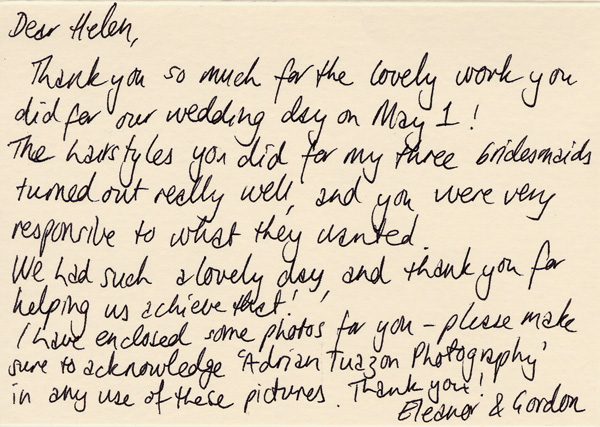 Dear Helen,
Thank you so much for the lovely work you
did for our wedding day on May 1!
The hairstyles you did for my three bridesmaids
turned out really well, and you were very
responsive to what they wanted.
We had such a lovely day, and thank you for
helping us achieve that!
I have enclosed some photos for you – please make
sure to acknowledge 'Adrian Tuazon Photography'
in any use of these pictures. Thank you!
Eleanor & Gordon